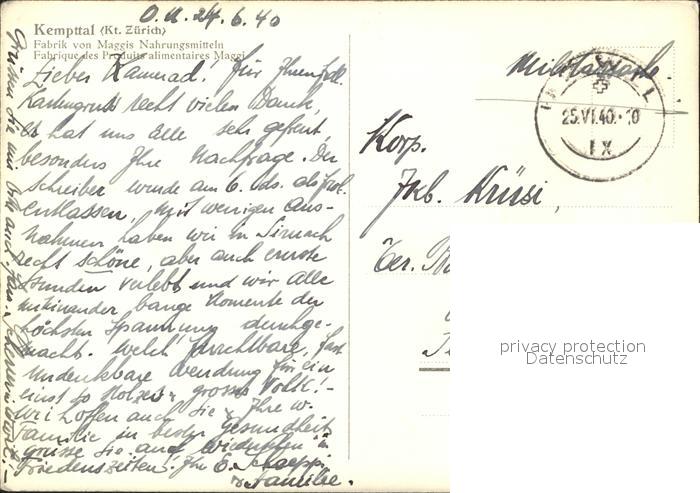 O. U. 24. 6. 40
Kempttal (Kt. Zürich)
Fabrik von Maggis Nahrungsmitteln
Fabrique des Produits alimentaires Maggi
Lieber Kamerad! Für Ihren frdl.
Kartengruss recht vielen Dank,
Es hat uns alle sehr gefreut,
besonders Ihre Nachfrage. Der
Schreiber wurde am 6. ds. als
entlassen, mit wenigen Aus-
nahmen haben wir in Sirnach
recht schöne, aber auch ernste
Stunden verlebt und wir alle
miteinander bange Momente der
höchsten Spannung durchge-
macht. Welch furchtbare, fast
undenkbare Wendung für ein
einst so stolzes grosses Volk! -
Wir hoffen auch Sie & Ihre w.
Familie in bester Gesundheit
grüsse Sie auf Wiedersehen in
Friedenszeiten! Ihr E.
& Familie.
Grüssen Sie mir bitte auch
Militärsache.
25.VI.40.-10
IX
Korp.
Jkb. Krüsi,
privacy protection
Datenschutz